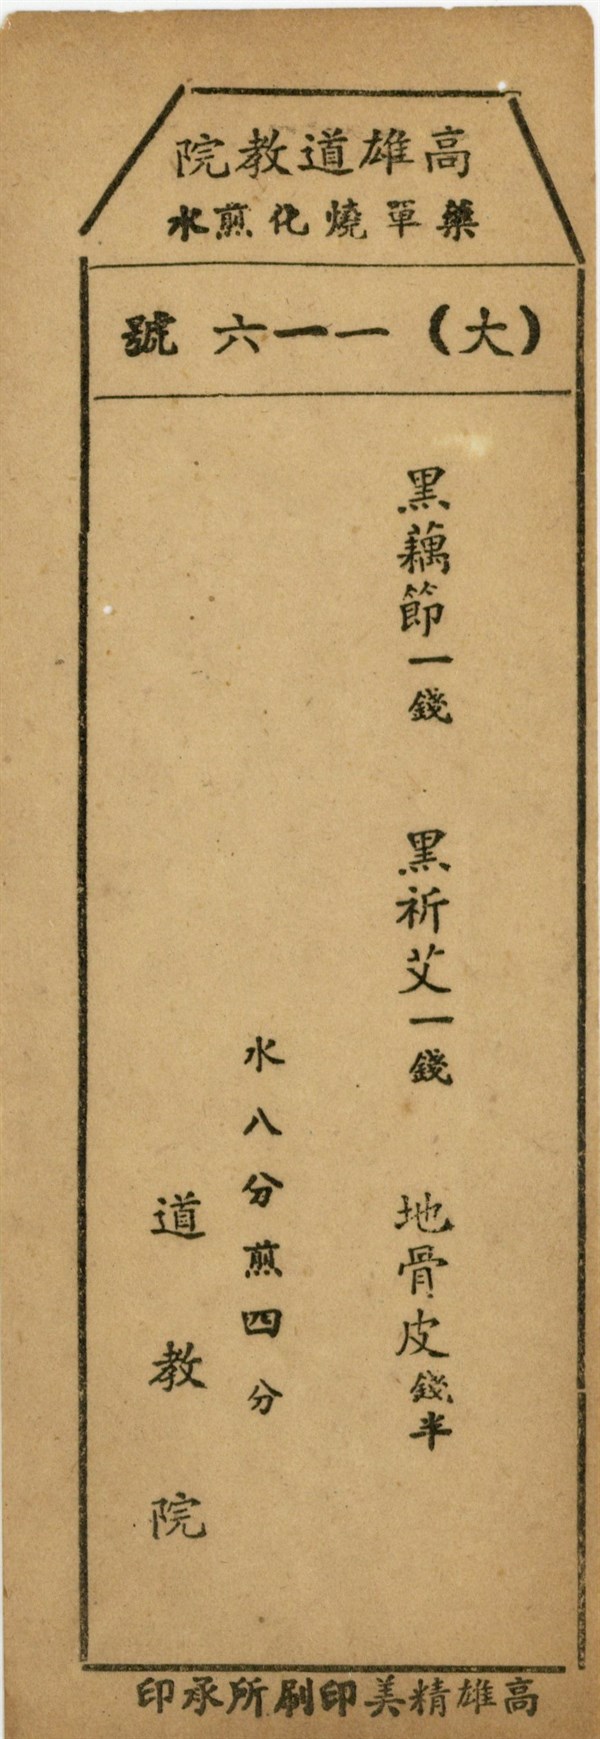 高雄道教院
藥單燒化煎水
(大)一一六號
黑藕節一錢 黑祈艾一錢 地骨皮錢半
水八分煎四分
道教院
高雄精美印刷所承印